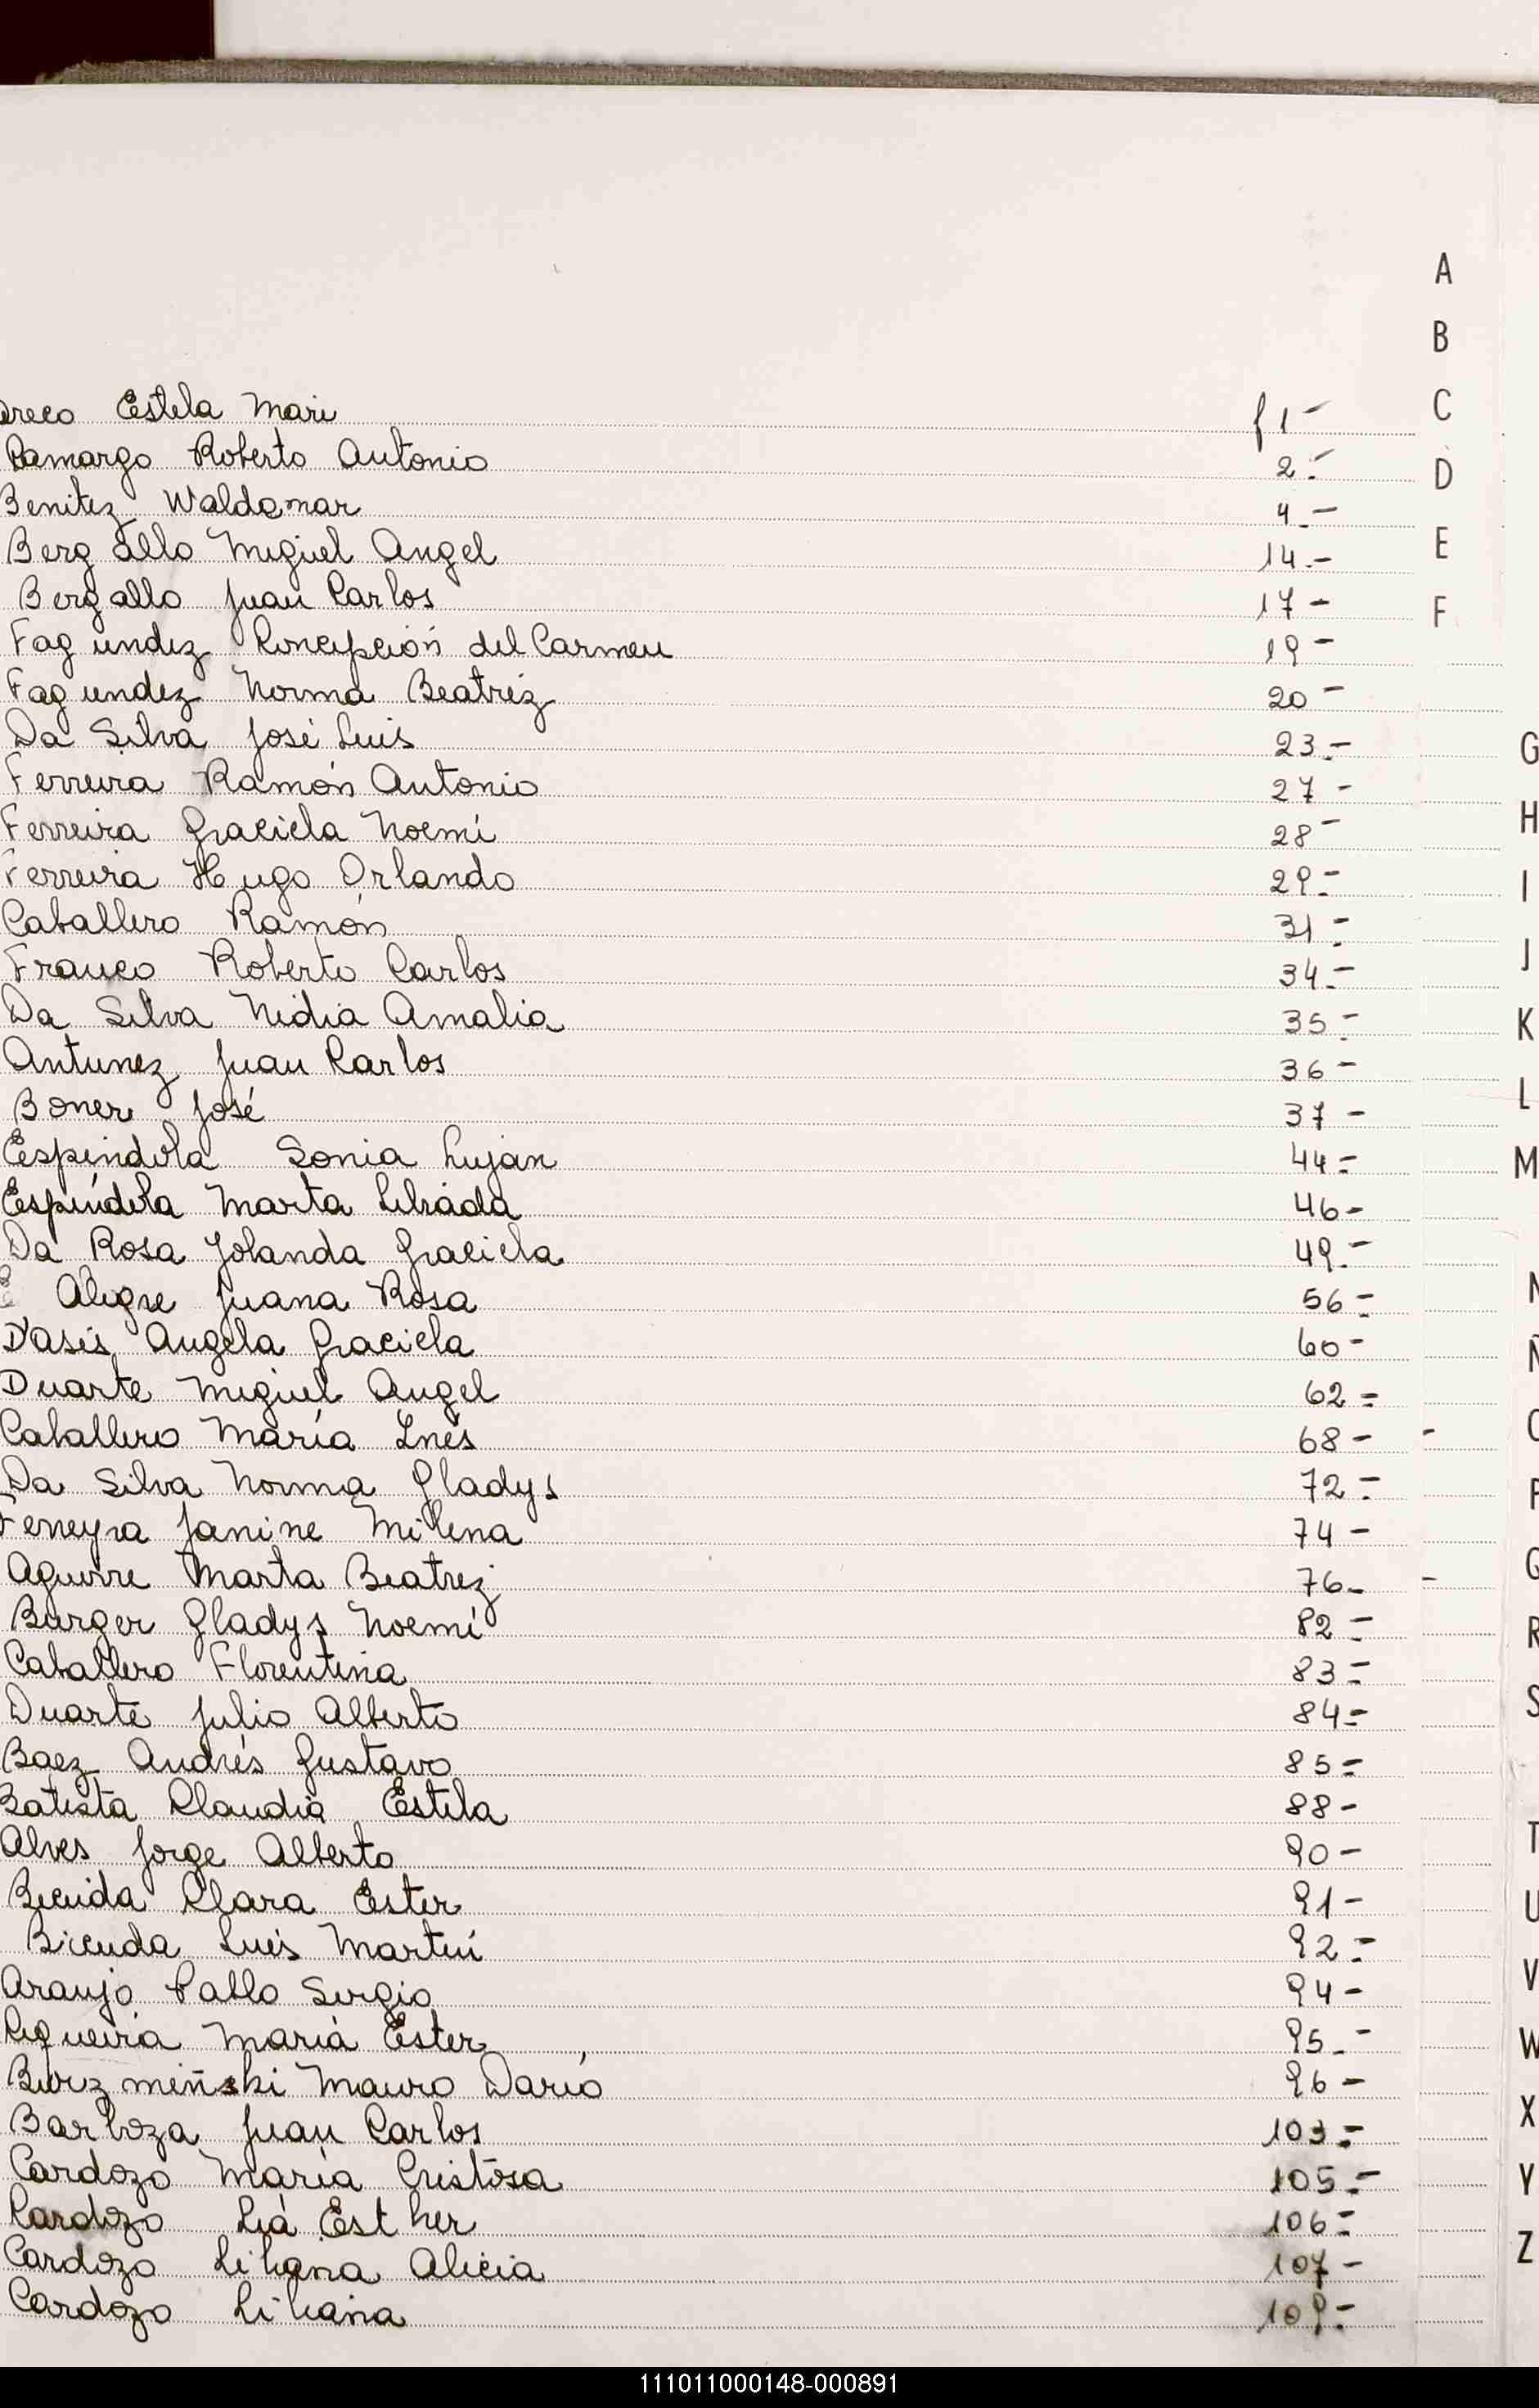 Estela Mari f 1-
Camargo Roberto Antonio 2.-
Benitez Waldemar 4.-
Bergallo Miguel Angel 14.-
Bergallo Juan Carlos 17-
Fagundez Concepción del Carmen 19-
Fagundez Norma Beatriz 20-
Da Silva José Luis 23.-
Ferreira Ramón Antonio 27-
Ferreira Graciela Noemi 28-
Ferreira Hugo Orlando 29.-
Caballero Ramón 31.-
Franco Roberto Carlos 34.-
Da Silva Nidia Amalia 35.-
Antunez Juan Carlos 36-
Boner José 37-
Espindola Sonia Luján 44.-
Espíndola Marta Librada 46-
Da Rosa Yolanda Graciela 49.-
Alegre Juana Rosa 56.-
D'asis Angela Graciela 60-
Duarte Miguel Angel 62=
Caballero María Inés 68- -
Da Silva Norma Gladys 72.-
Ferreyra Janine Milena 74-
Aguirre Marta Beatriz 76- -
Burger Gladys Noemí 82.-
Caballero Florentina 83.-
Duarte Julio Alberto 84.-
Baez Andrés Gustavo 85.-
Batista Claudia Estela 88-
Alves Jorge Alberto 90-
Bicuida Clara Ester 91-
Bicuda Luis Martín 92.-
Araujo Pablo Sergio 94-
María Ester 95.-
Mauro Darío 96-
Barboza Juan Carlos 103.-
Cardozo María Cristosa 105.-
Cardozo Lia Esther 106.-
Cardozo Liliana Alicia 107-
Cardozo Liliana 109.-
A
B
C
D
E
F
G
H
I
J
K
L
M
N
Ñ
O
P
Q
R
S
T
U
V
W
X
Y
Z
111011000148-000891